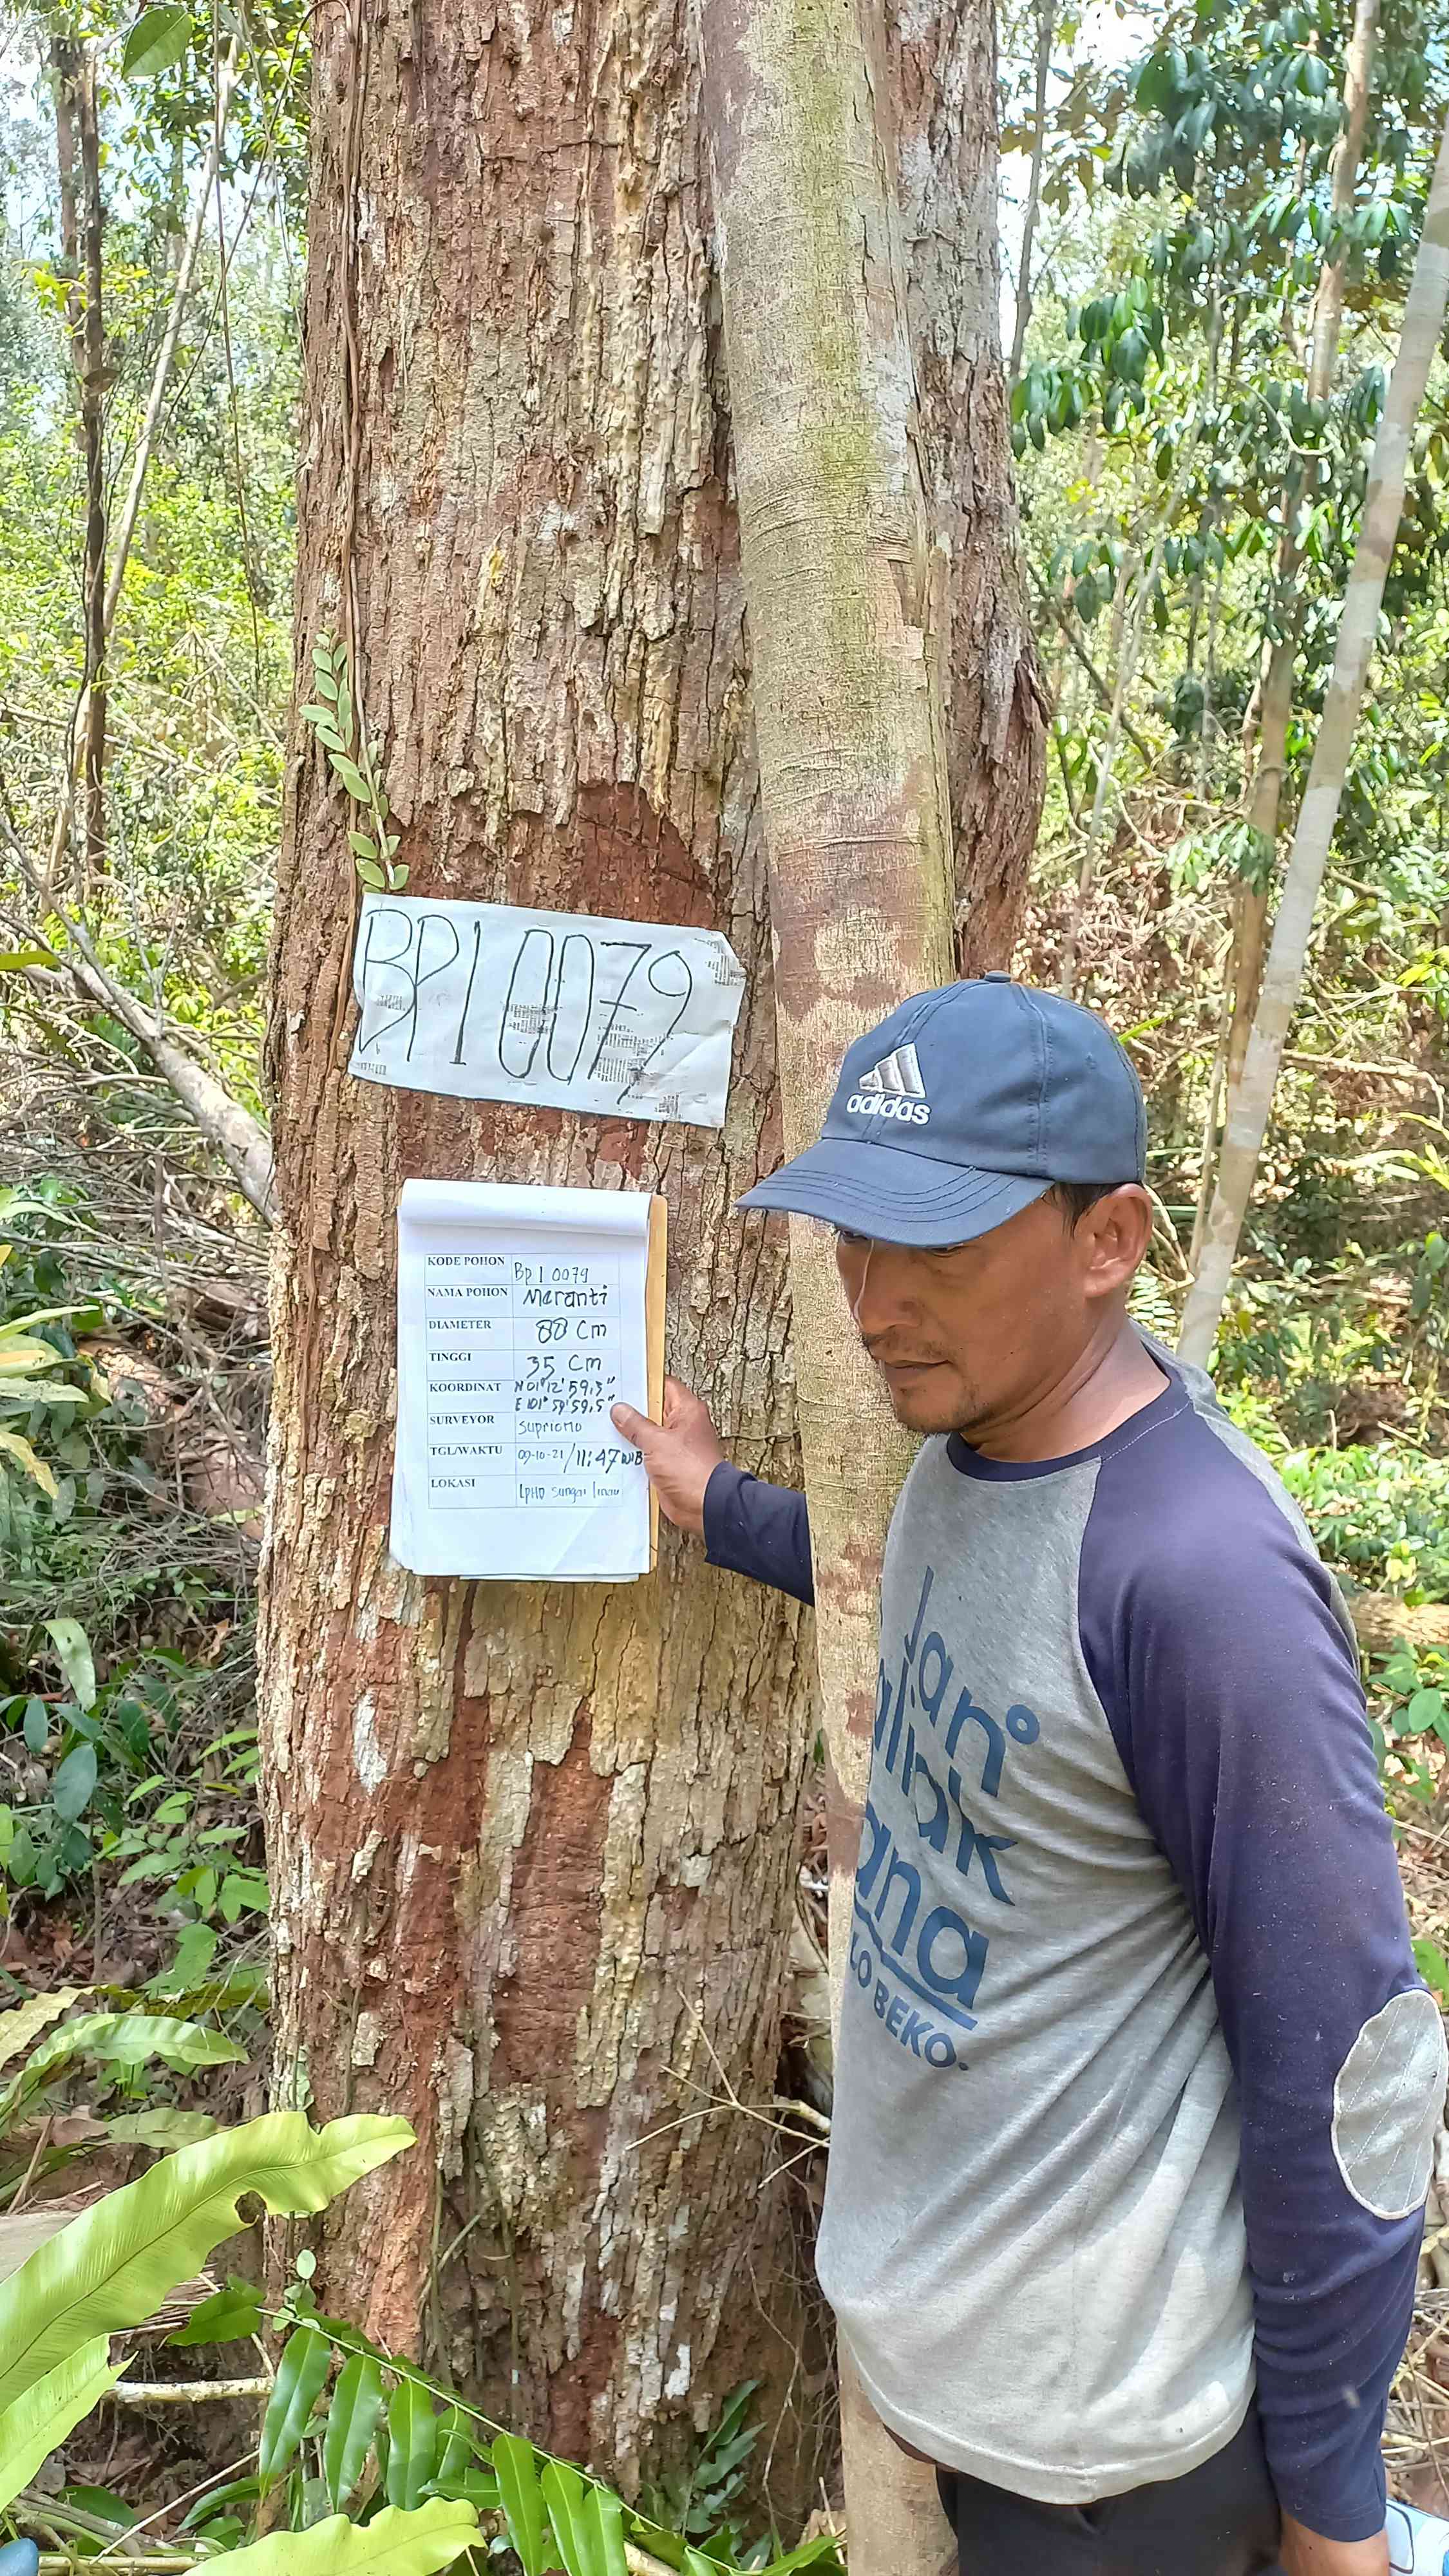 BPI 0079
adidas
KODE POHON BPI 0079
NAMA POHON Meranti
DIAMETER 88 Cm
TINGGI 35 Cm
KOORDINAT N 01°12'59,3"
E 101°59'59,5"
SURVEYOR Supriono
TGL/WAKTU 09-10-21/11:47 WIB
LOKASI LPHD Sungai linau
Jan°
ana
LO BEKO